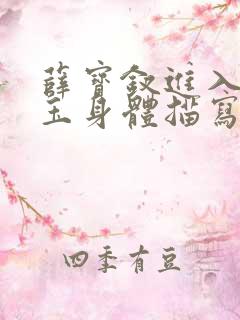 薛寶釵進入
玉身體描寫
四季有豆